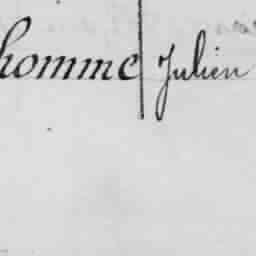 homme Julien